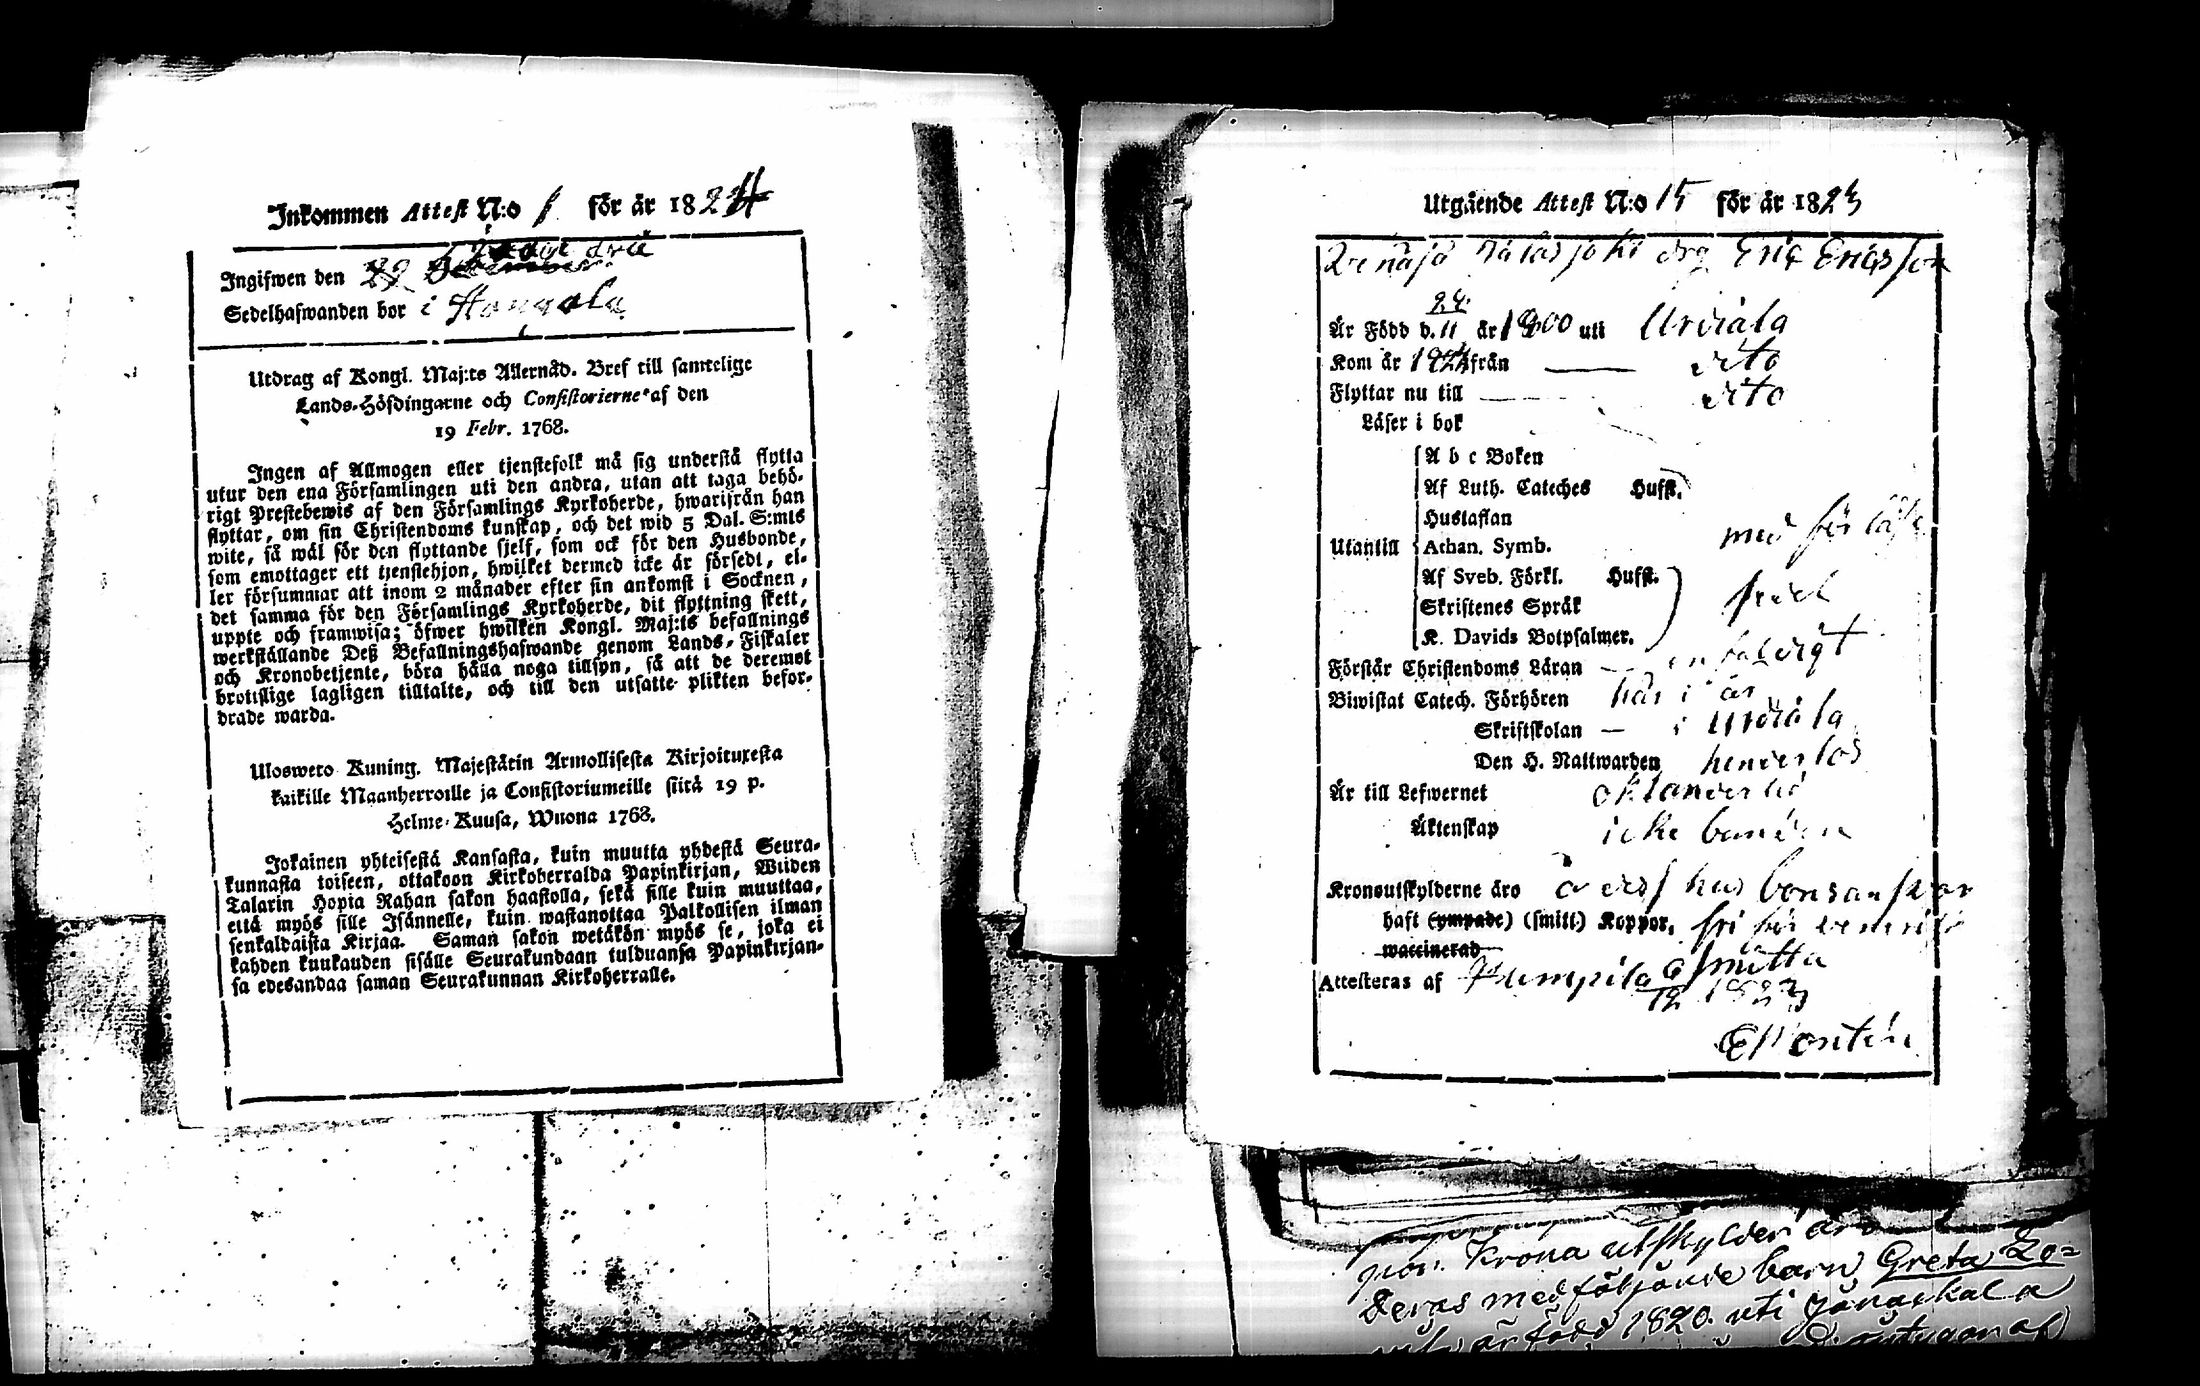 Inkommen Attest N:o 1 för år 1824
Ingifwen den 22 December
Sedelhafwanden bor i Hongola
Utdrag af Kongl. Maj:ts Allernåd. Bref till samtelige
Lands-Höfdingarne och Consistorierne af den
19 Febr. 1768.
Ingen af Allmogen eller tjenstefolk må sig understå flytta
utur den ena Församlingen uti den andra, utan att taga behö-
rigt Prestebewis af den Församlings Kyrkoherde, hwarifrån han
flyttar, om sin Christendoms kunskap, och det wid 5 Dal. S:mts
wite, så wäl för den flyttande sjelf, som ock för den Husbonde,
som emottager ett tjenstehjon, hwilket dermed icke är försedt, el-
ler försummar att inom 2 månader efter sin ankomst i Socknen,
det samma för den Församlings Kyrkoherde, dit flyttning skett,
uppte och framwisa; öfwer hwilken Kongl. Maj:ts befallnings
werkställande Deß Befallningshafwande genom Lands-Fiskaler
och Kronobetjente, böra hålla noga tillsyn, så att de deremot
brottslige lagligen tilltalte, och till den utsatte plikten befor-
drade warda.
Ulosweto Kuning. Majestätin Armollisesta Kirjoituxesta
kaikille Maanherroille ja Consistoriumeille siitä 19 p.
Helme-Kuusa, Wuona 1768.
Jokainen yhteisestä Kansasta, kuin muutta yhdestä Seura-
kunnasta toiseen, ottakoon Kirkoherralda Papinkirjan, Wiiden
Talarin Hopia Rahan sakon haastolla, sekä sille kuin muuttaa,
että myös sille Isännelle, kuin wastanottaa Palkollisen ilman
senkaldaista Kirjaa. Saman sakon wetäkön myös se, joka ei
kahden kuukauden sisälle Seurakundaan tulduansa Papinkirjan-
sa edesandaa saman Seurakunnan Kirkoherralle.
Utgående Attest N:o 15 för år 1823
drg Eric Ericsson
24
Är Född d. 11 år 1800 uti Urdiala
Kom år 1822 från — dito
Flyttar nu till — dito
Läser i bok
A b c Boken
Af Luth. Cateches Husft.
Hustaflan
Utantill Athan. Symb. med för
Af Sveb. Förkl. Husft.
Skriftenes Språk
K. Davids Botpsalmer.
Förstår Christendoms Läran — enfaldigt
Biwistat Catech. Förhören här i år
Skriftskolan — i Urdiala
Den H. Nattwarden
Är till Lefwernet oklanderlig
Äktenskap icke bunden
Kronoutskylderne äro å dess husbondans swar
haft (ympade) (smitt) Koppor, fri för venerisk
waccinerad smitta
Attesteras af Humpila 12 1823
E Pontin
Krona utskylder äro
Deras medföljande barn Greta Lo=
är född 1820. uti